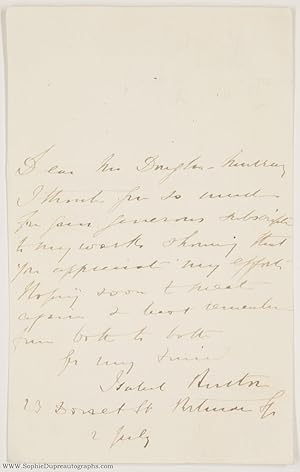 Dear Mrs Douglas-Murray
I thank you so much
for your generous subscription
to my works showing that
you appreciate my efforts
Hoping soon to meet
again & best remembrances
from both to both
Isabel Burton
23 Dorset St Portman Sq
2 July
www.SophieDupreautographs.com